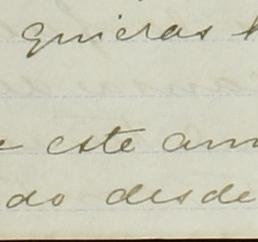 quieras
este am
do desde